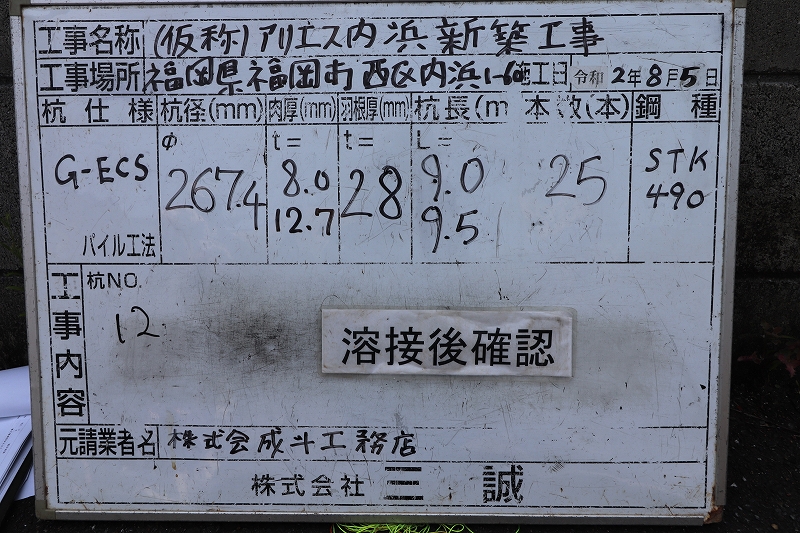 工事名称 (仮称)アリエス内浜新築工事
工事場所 福岡県福岡市西区内浜1-6 施工日 令和2年8月5日
杭仕様 杭径(mm) 肉厚(mm) 羽根厚(mm) 杭長(m 本数(本) 鋼種
φ t= t= L=
G-ECS 267.4 8.0 28 9.0 25 STK
12.7 9.5 490
パイル工法
工事内容 杭NO
12
溶接後確認
元請業者名 株式会成斗工務店
株式会社 三誠